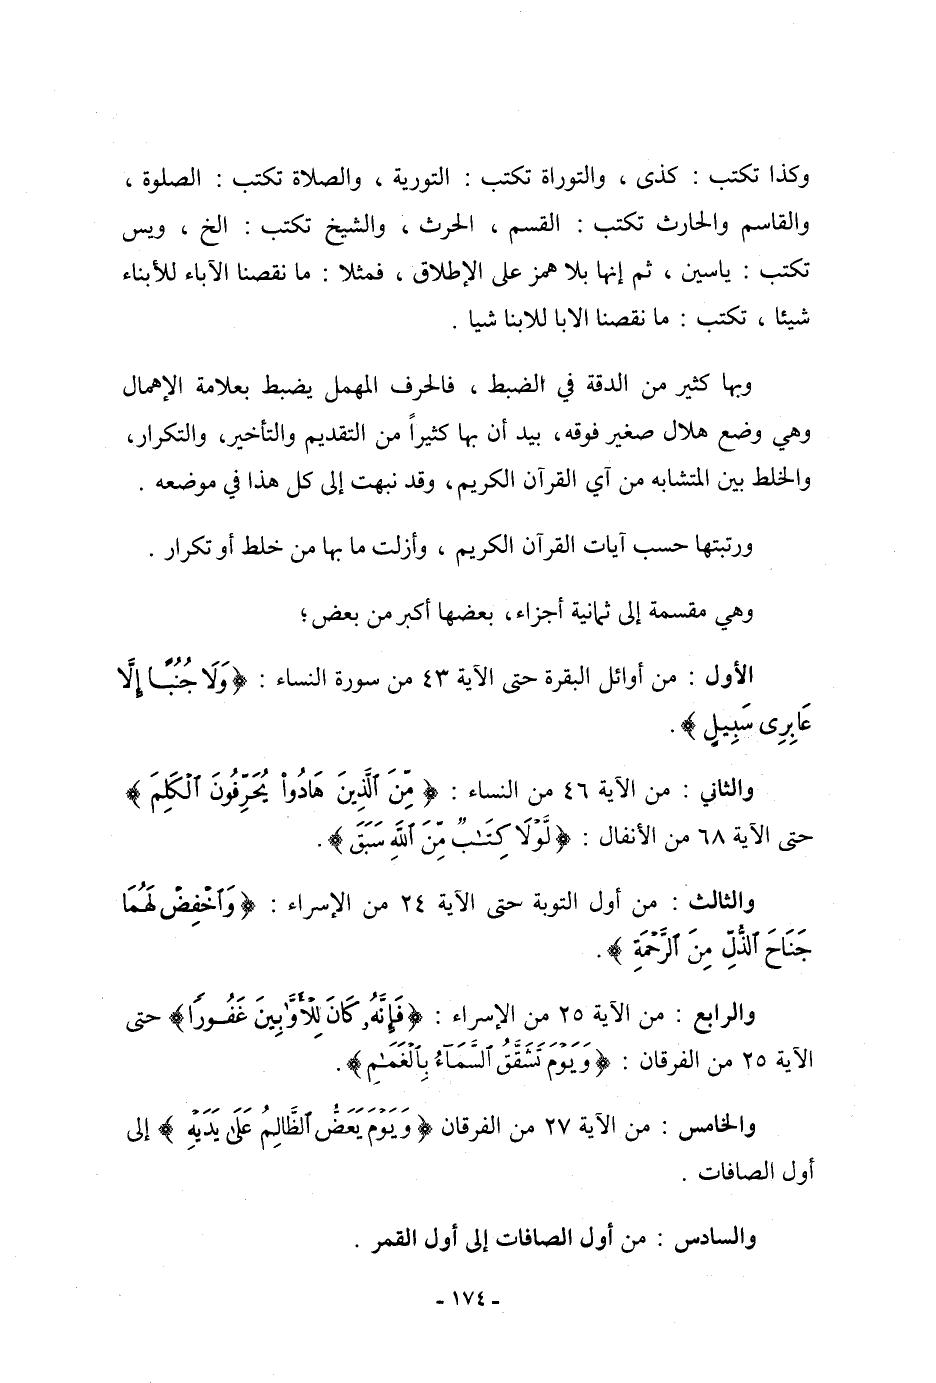 وكذا تكتب : كذى ، والتوراة تكتب : التورية ، والصلاة تكتب : الصلوة ،
والقاسم والحارث تكتب : القسم ، الحرث ، والشيخ تكتب : الخ ، ويس
تكتب : ياسين ، ثم إنها بلا همز على الإطلاق ، فمثلا : ما نقصنا الآباء للأبناء
شيئا ، تكتب : ما نقصنا الابا للابنا شيا .
وبها كثير من الدقة في الضبط ، فالحرف المهمل يضبط بعلامة الإهمال
وهي وضع هلال صغير فوقه، بيد أن بها كثيراً من التقديم والتأخير، والتكرار،
والخلط بين المتشابه من آي القرآن الكريم، وقد نبهت إلى كل هذا في موضعه .
ورتبتها حسب آيات القرآن الكريم ، وأزلت ما بها من خلط أو تكرار .
وهي مقسمة إلى ثمانية أجزاء، بعضها أكبر من بعض؛
الأول : من أوائل البقرة حتى الآية ٤٣ من سورة النساء : ﴿وَلَا جُنُبًا إِلَّا
عَابِرِى سَبِيلٍ﴾ .
والثاني : من الآية ٤٦ من النساء : ﴿ مِّنَ ٱلَّذِينَ هَادُوا۟ يُحَرِّفُونَ ٱلْكَلِمَ ﴾
حتى الآية ٦٨ من الأنفال : ﴿ لَّوْلَا كِتَـٰبٌ مِّنَ ٱللَّهِ سَبَقَ ﴾ .
والثالث : من أول التوبة حتى الآية ٢٤ من الإسراء : ﴿ وَٱخْفِضْ لَهُمَا
جَنَاحَ ٱلذُّلِّ مِنَ ٱلرَّحْمَةِ ﴾ .
والرابع : من الآية ٢٥ من الإسراء : ﴿فَإِنَّهُۥ كَانَ لِلْأَوَّٰبِينَ غَفُورًا﴾ حتى
الآية ٢٥ من الفرقان : ﴿ وَيَوْمَ تَشَقَّقُ ٱلسَّمَآءُ بِٱلْغَمَـٰمِ ﴾ .
والخامس : من الآية ٢٧ من الفرقان ﴿ وَيَوْمَ يَعَضُّ ٱلظَّالِمُ عَلَىٰ يَدَيْهِ ﴾ إلى
أول الصافات .
والسادس : من أول الصافات إلى أول القمر .
- ١٧٤ -